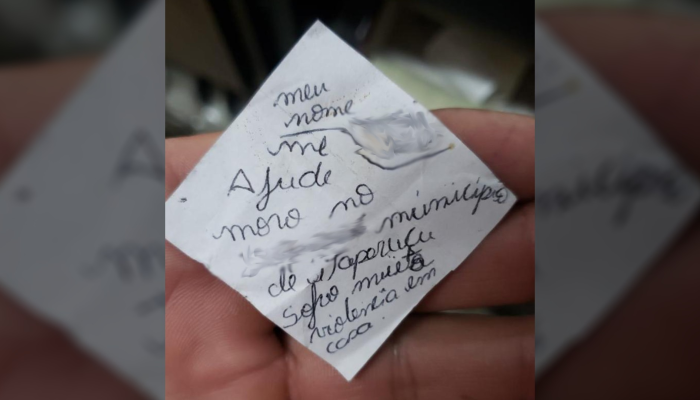 meu
nome
me
Ajude
moro no
municipio
de itaporucu
Sofro muita
violencia em
casa.